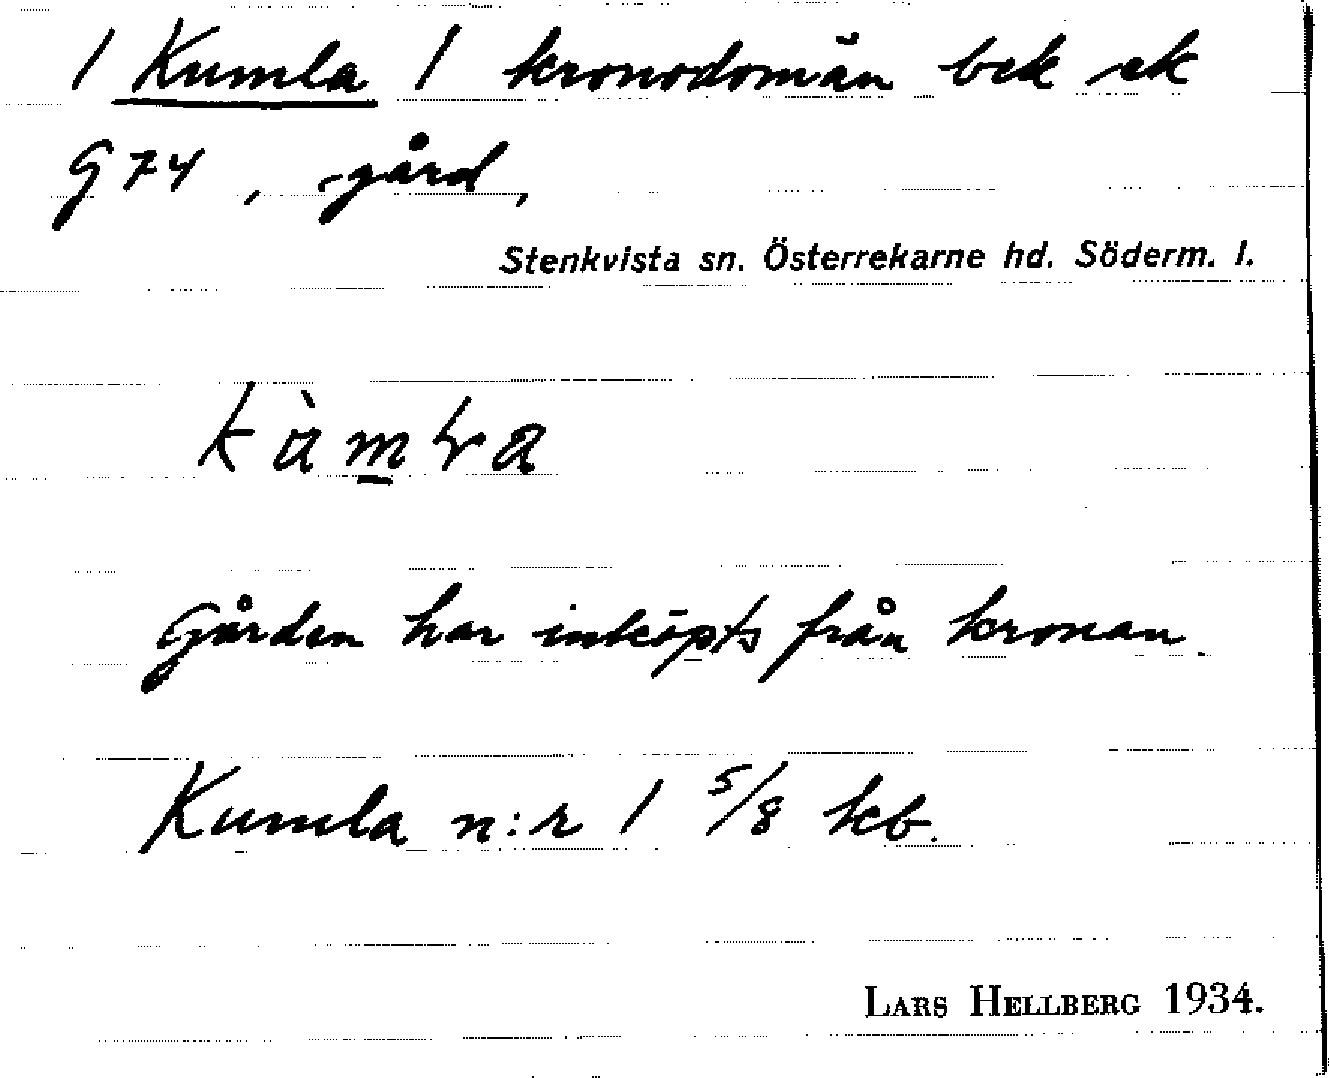 1 Kumla 1 kronodomän bek ek
G 74, gård,
Stenkvista sn. Österrekarne hd. Söderm. l.
Gården har inköpts från kronan.
Kumla n:r 1 5/8 kb.
LARS HELLBERG 1934.